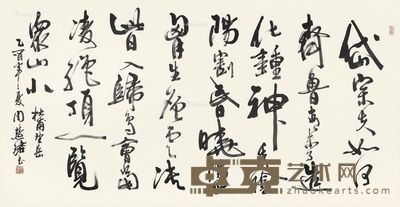 岱宗夫如何
齊魯青未了造
化鍾神秀陰
陽割昏曉蕩
胸生層雲決
眥入歸鳥會當
凌絕頂一覽
衆山小
杜甫望岳
乙酉年夏周慧珺書